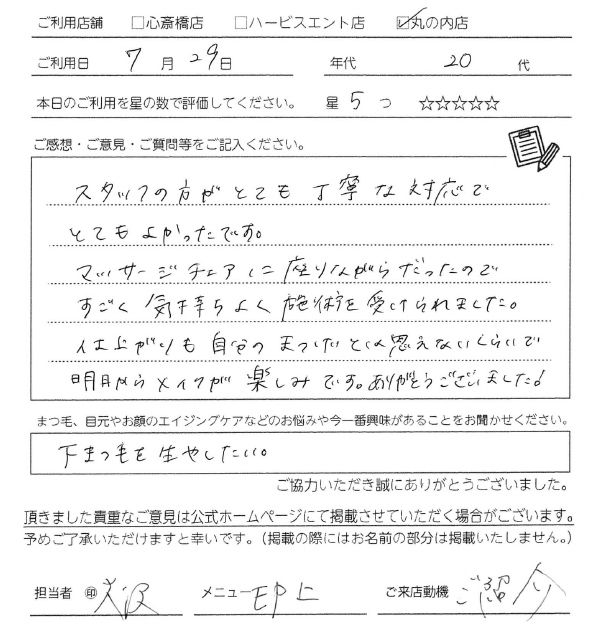 ご利用店舗 □心斎橋店 □ハービスエント店 ☑丸の内店
ご利用日 7月29日 年代 20代
本日のご利用を星の数で評価してください。 星5つ ☆☆☆☆☆
ご感想・ご意見・ご質問等をご記入ください。
スタッフの方がとても丁寧な対応で
とてもよかったです。
マッサージチェアに座りながらだったので
すごく気持ちよく施術を受けられました。
仕上がりも自分のまつげとは思えないくらいで
明日からメイクが楽しみです。ありがとうございました!
まつ毛、目元やお顔のエイジングケアなどのお悩みや今一番興味があることをお聞かせください。
下まつ毛を生やしたい。
ご協力いただき誠にありがとうございました。
頂きました貴重なご意見は公式ホームページにて掲載させていただく場合がございます。
予めご了承いただけますと幸いです。(掲載の際にはお名前の部分は掲載いたしません。)
担当者 ㊞ メニュー EP上 ご来店動機 ご紹介